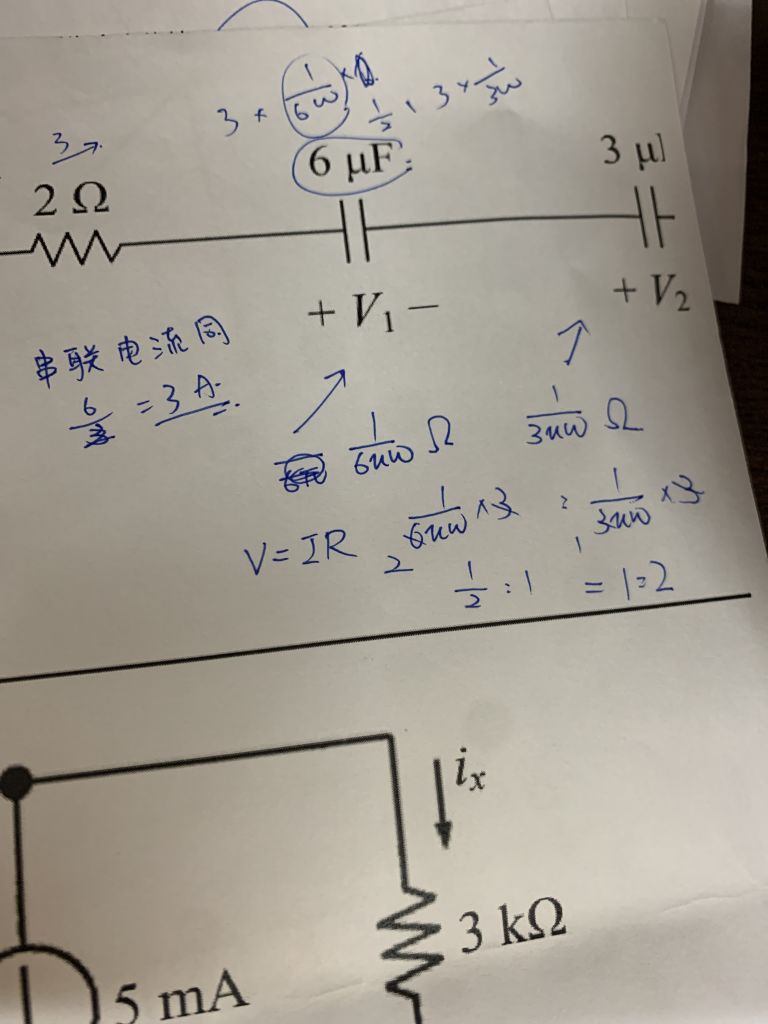 3 × 1/6ω × 1/2 , 3 × 1/3ω
3 →
6 μF
3 μ
2 Ω
+ V₁ −
+ V₂
串联电流同
6/2 = 3 A.
1/6μω Ω
1/3μω Ω
V = IR
1/6μω × 3 : 1/3μω × 3
2
1
1/2 : 1 = 1:2
iₓ
3 kΩ
5 mA